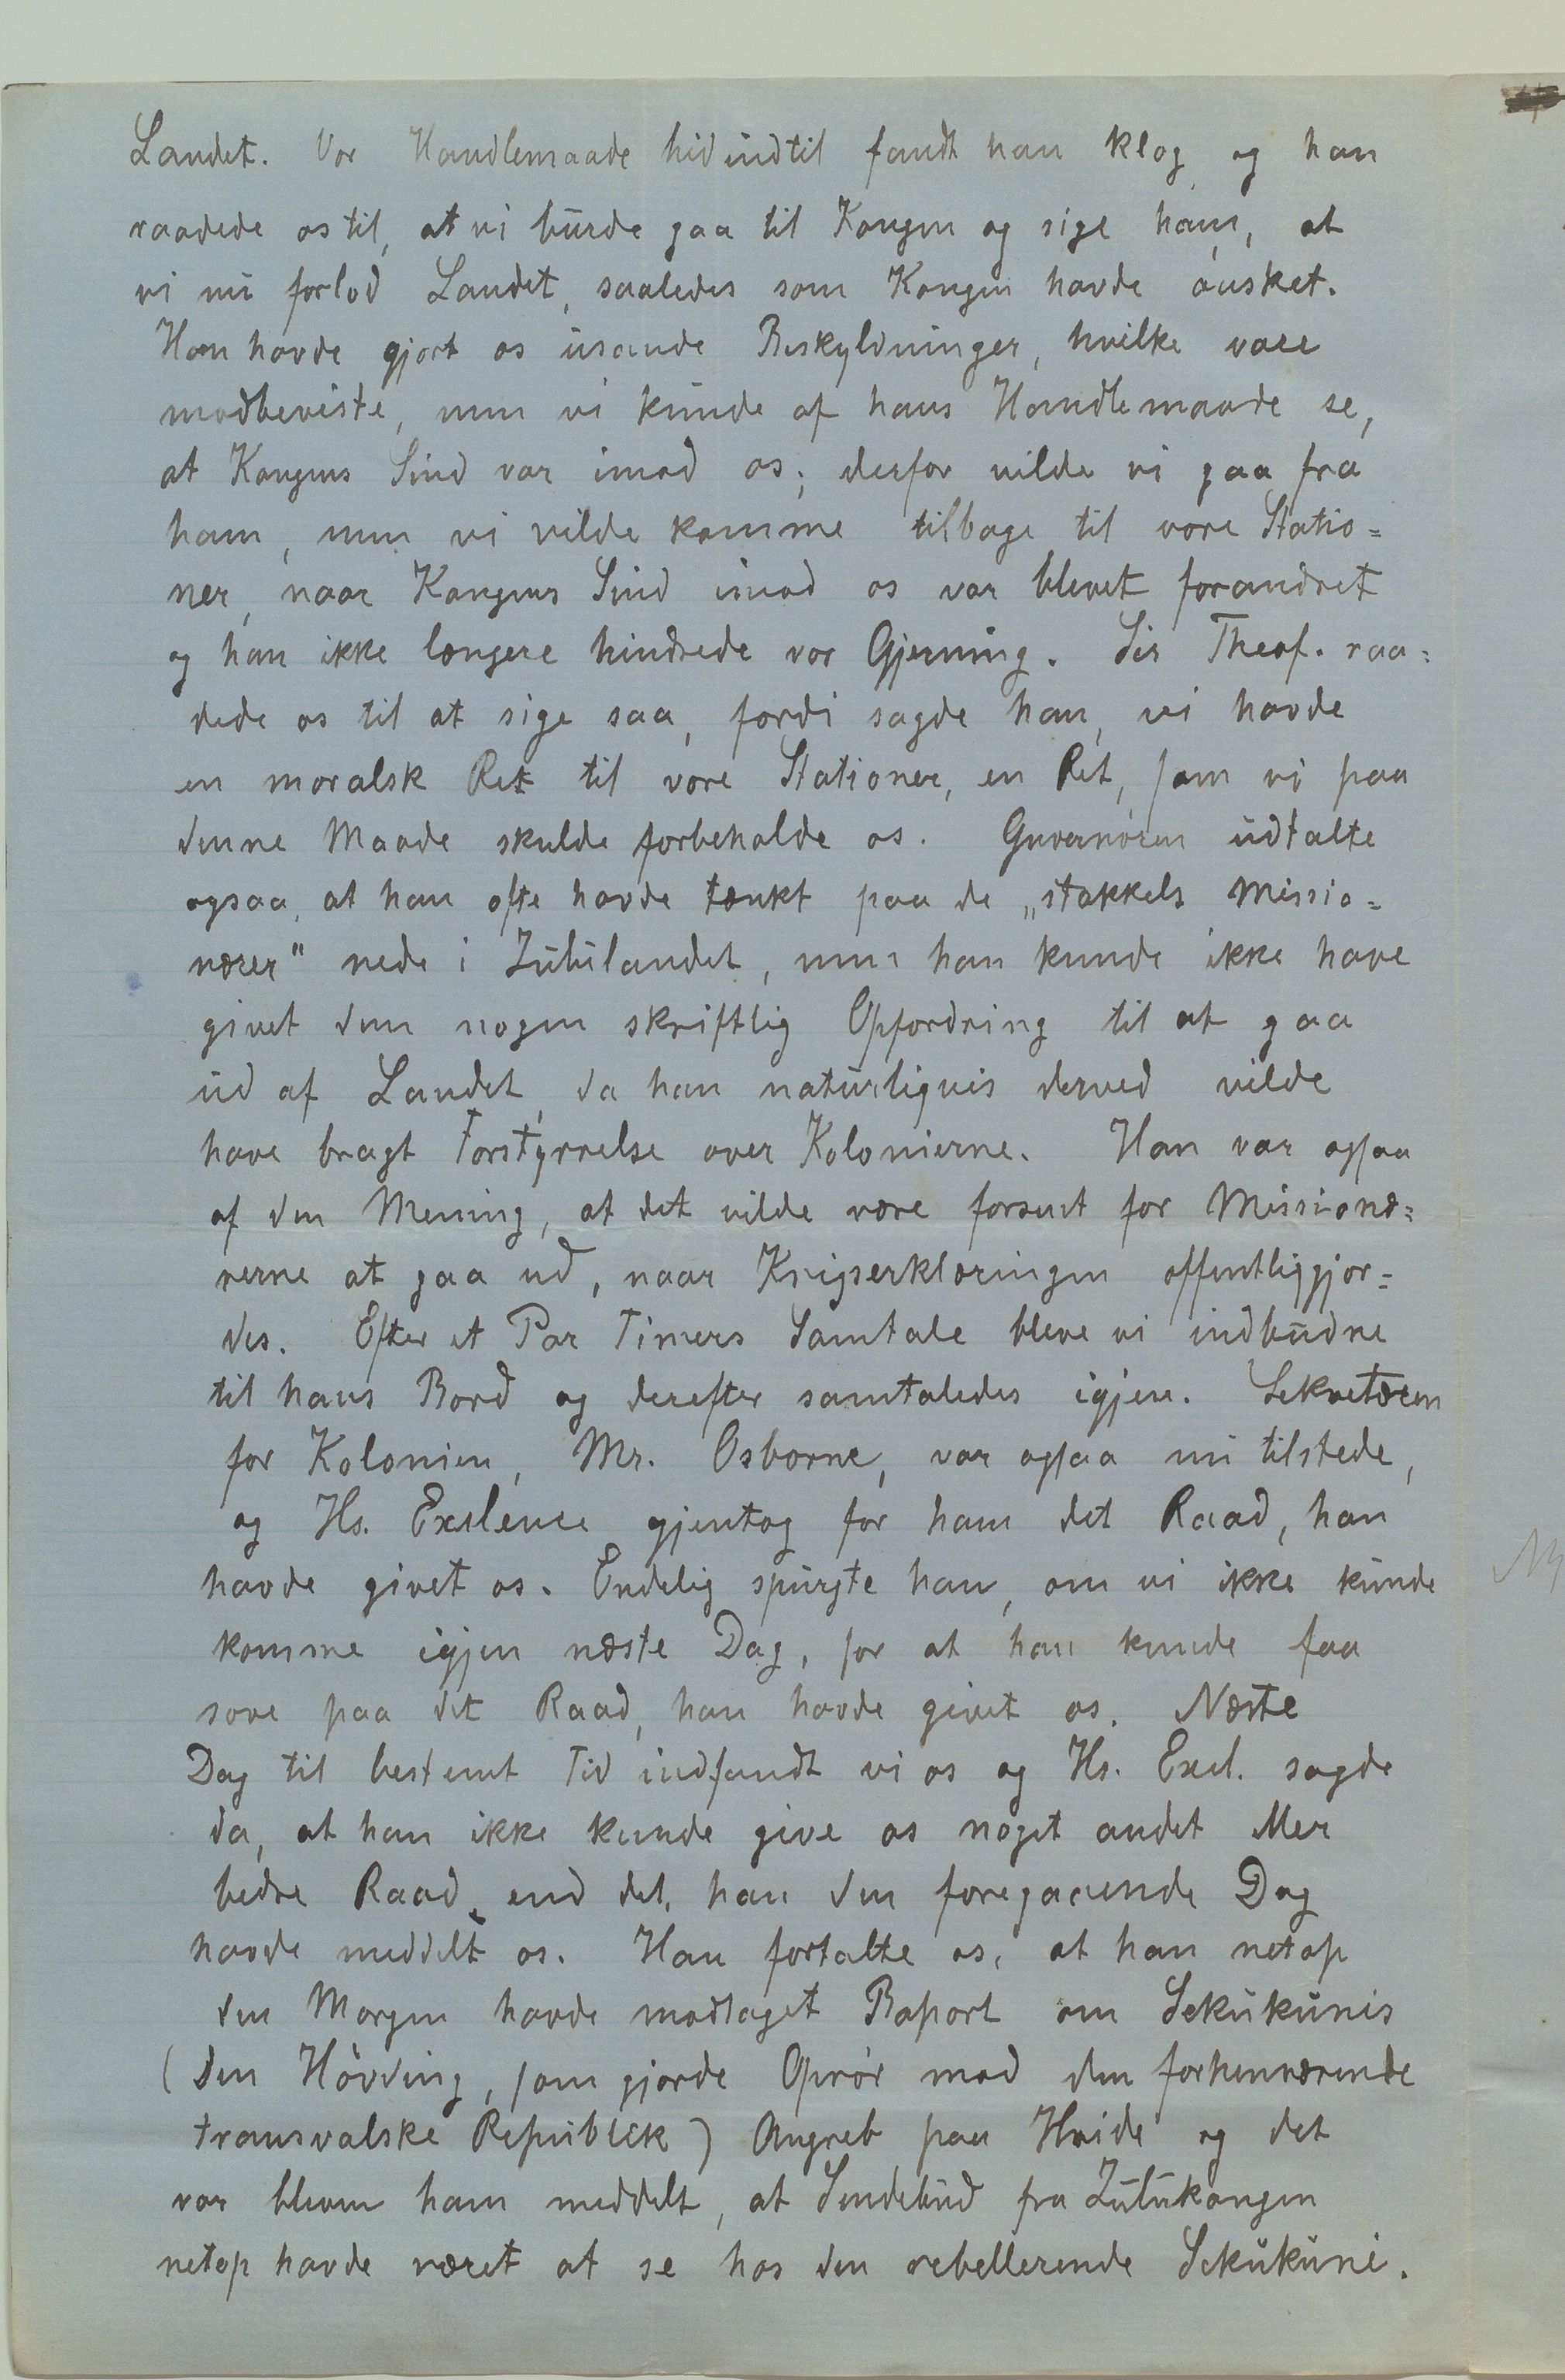 Landet. Vor Handlemaade hidindtil fandt han klog, og han
raadede os til, at vi burde gaa til Kongen og sige ham, at
vi nu forlod Landet, saaledes som Kongen havde ønsket.
Han havde gjort os usande Beskyldninger, hvilke vare
modbeviste, men vi kunde af hans Handlemaade se,
at Kongens Sind var imod os; derfor vilde vi gaa fra
ham, men vi vilde komme tilbage til vore Statio=
ner, naar Kongens Sind imod os var blevet forandret
og han ikke længere hindrede vor Gjerning. Sir Theof. raa=
dede os til at sige saa, fordi sagde han, vi havde
en moralsk Ret til vore Stationer, en Ret, som vi paa
denne Maade skulde forbeholde os. Guvernøren udtalte
ogsaa, at han ofte havde tænkt paa de „stakkels Missio=
nærer" nede i Zululandet, men han kunde ikke have
givet dem nogen skriftlig Opfordring til at gaa
ud af Landet, da han naturligvis derved vilde
have bragt Forstyrrelse over Kolonierne. Han var ogsaa
af den Mening, at det vilde være forsent for Missionæ=
rerne at gaa ud, naar Krigserklæringen offentliggjor=
des. Efter et Par Timers Samtale bleve vi indbudne
til hans Bord og derefter samtaledes igjen. Sekretæren
for Kolonien, Mr. Osborne, var ogsaa nu tilstede,
og Hs. Exelence gjentog for ham det Raad, han
havde givet os. Endelig spurgte han, om vi ikke kunde
komme igjen næste Dag, for at han kunde faa
sove paa det Raad, han havde givet os. Næste
Dag til bestemt Tid indfandt vi os og Hs. Exel. sagde
da, at han ikke kunde give os noget andet eller
bedre Raad, end det, han den foregaaende Dag
havde meddelt os. Han fortalte os, at han netop
den Morgen havde modtaget Raport om Sekukunis
(den Høvding, som gjorde Oprør mod den forhenværende
transvalske Republik) Angreb paa Hvide og det
var bleven ham meddelt, at Sendebud fra Zulukongen
netop havde været at se hos den rebellerende Sekukuni.